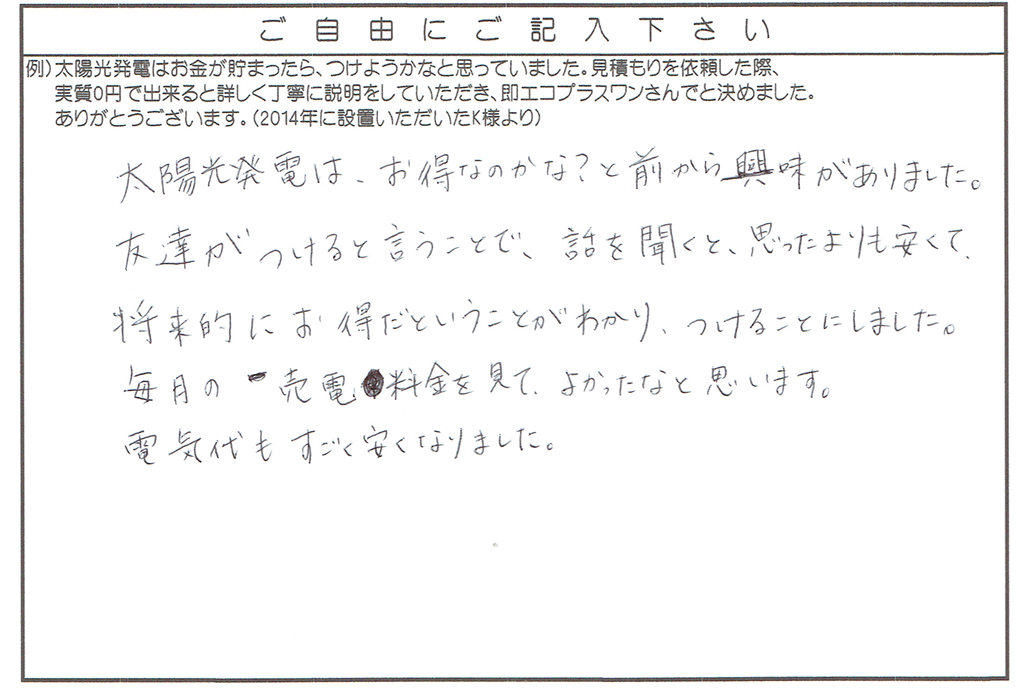 ご自由にご記入下さい
例）太陽光発電はお金が貯まったら、つけようかなと思っていました。見積もりを依頼した際、
実質0円で出来ると詳しく丁寧に説明をしていただき、即エコプラスワンさんでと決めました。
ありがとうございます。（2014年に設置いただいたK様より）
太陽光発電は、お得なのかな?と前から興味がありました。
友達がつけると言うことで、話を聞くと、思ったよりも安くて、
将来的にお得だということがわかり、つけることにしました。
毎月の売電料金を見て、よかったなと思います。
電気代もすごく安くなりました。